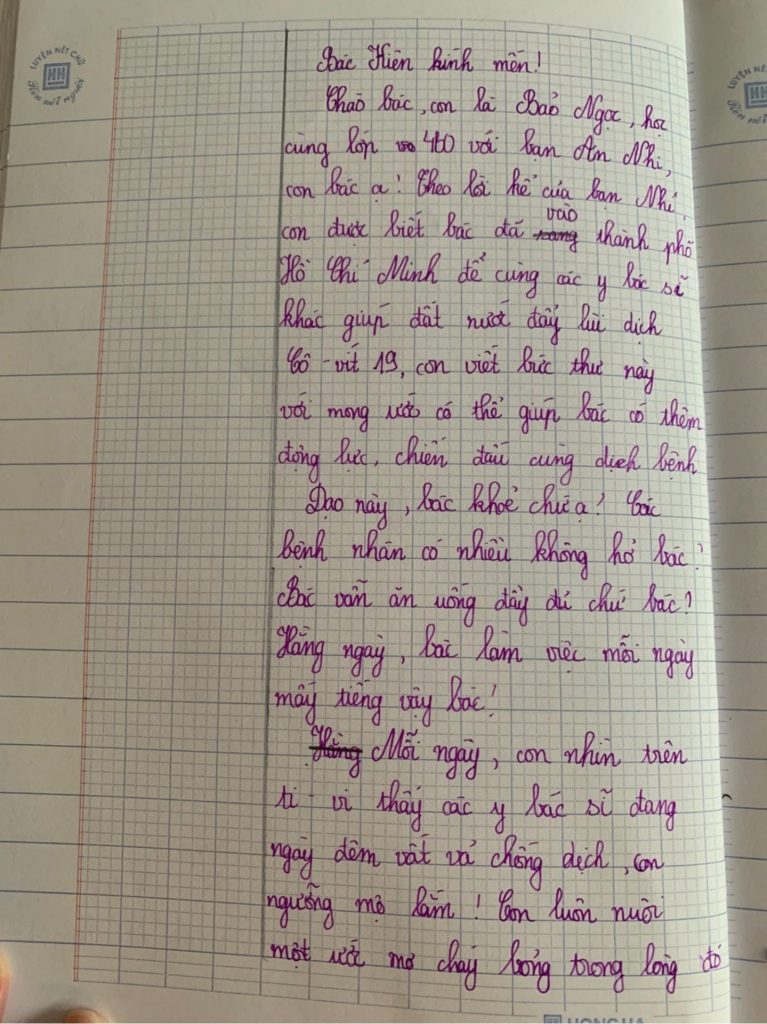 LUYỆN NÉT CHỮ
HH
Rèn nết người
LUYỆN NÉT
HH
Rèn nết
Bác Hiên kính mến!
Chào bác, con là Bảo Ngọc, học
cùng lớp 4D với bạn An Nhi,
con bác ạ! Theo lời kể của bạn Nhi,
con được biết bác đã vào thành phố
Hồ Chí Minh để cùng các y bác sĩ
khác giúp đất nước đẩy lùi dịch
Cô-vít 19, con viết bức thư này
với mong ước có thể giúp bác có thêm
động lực, chiến đấu cùng dịch bệnh
Dạo này, bác khoẻ chứ ạ? Các
bệnh nhân có nhiều không hở bác?
Bác vẫn ăn uống đầy đủ chứ bác?
Hằng ngày, bác làm việc mỗi ngày
mấy tiếng vậy bác!
Hằng Mỗi ngày, con nhìn trên
ti-vi thấy các y bác sĩ đang
ngày đêm vất vả chống dịch, con
ngưỡng mộ lắm! Con luôn nuôi
một ước mơ cháy bỏng trong lòng đó
HONG HA